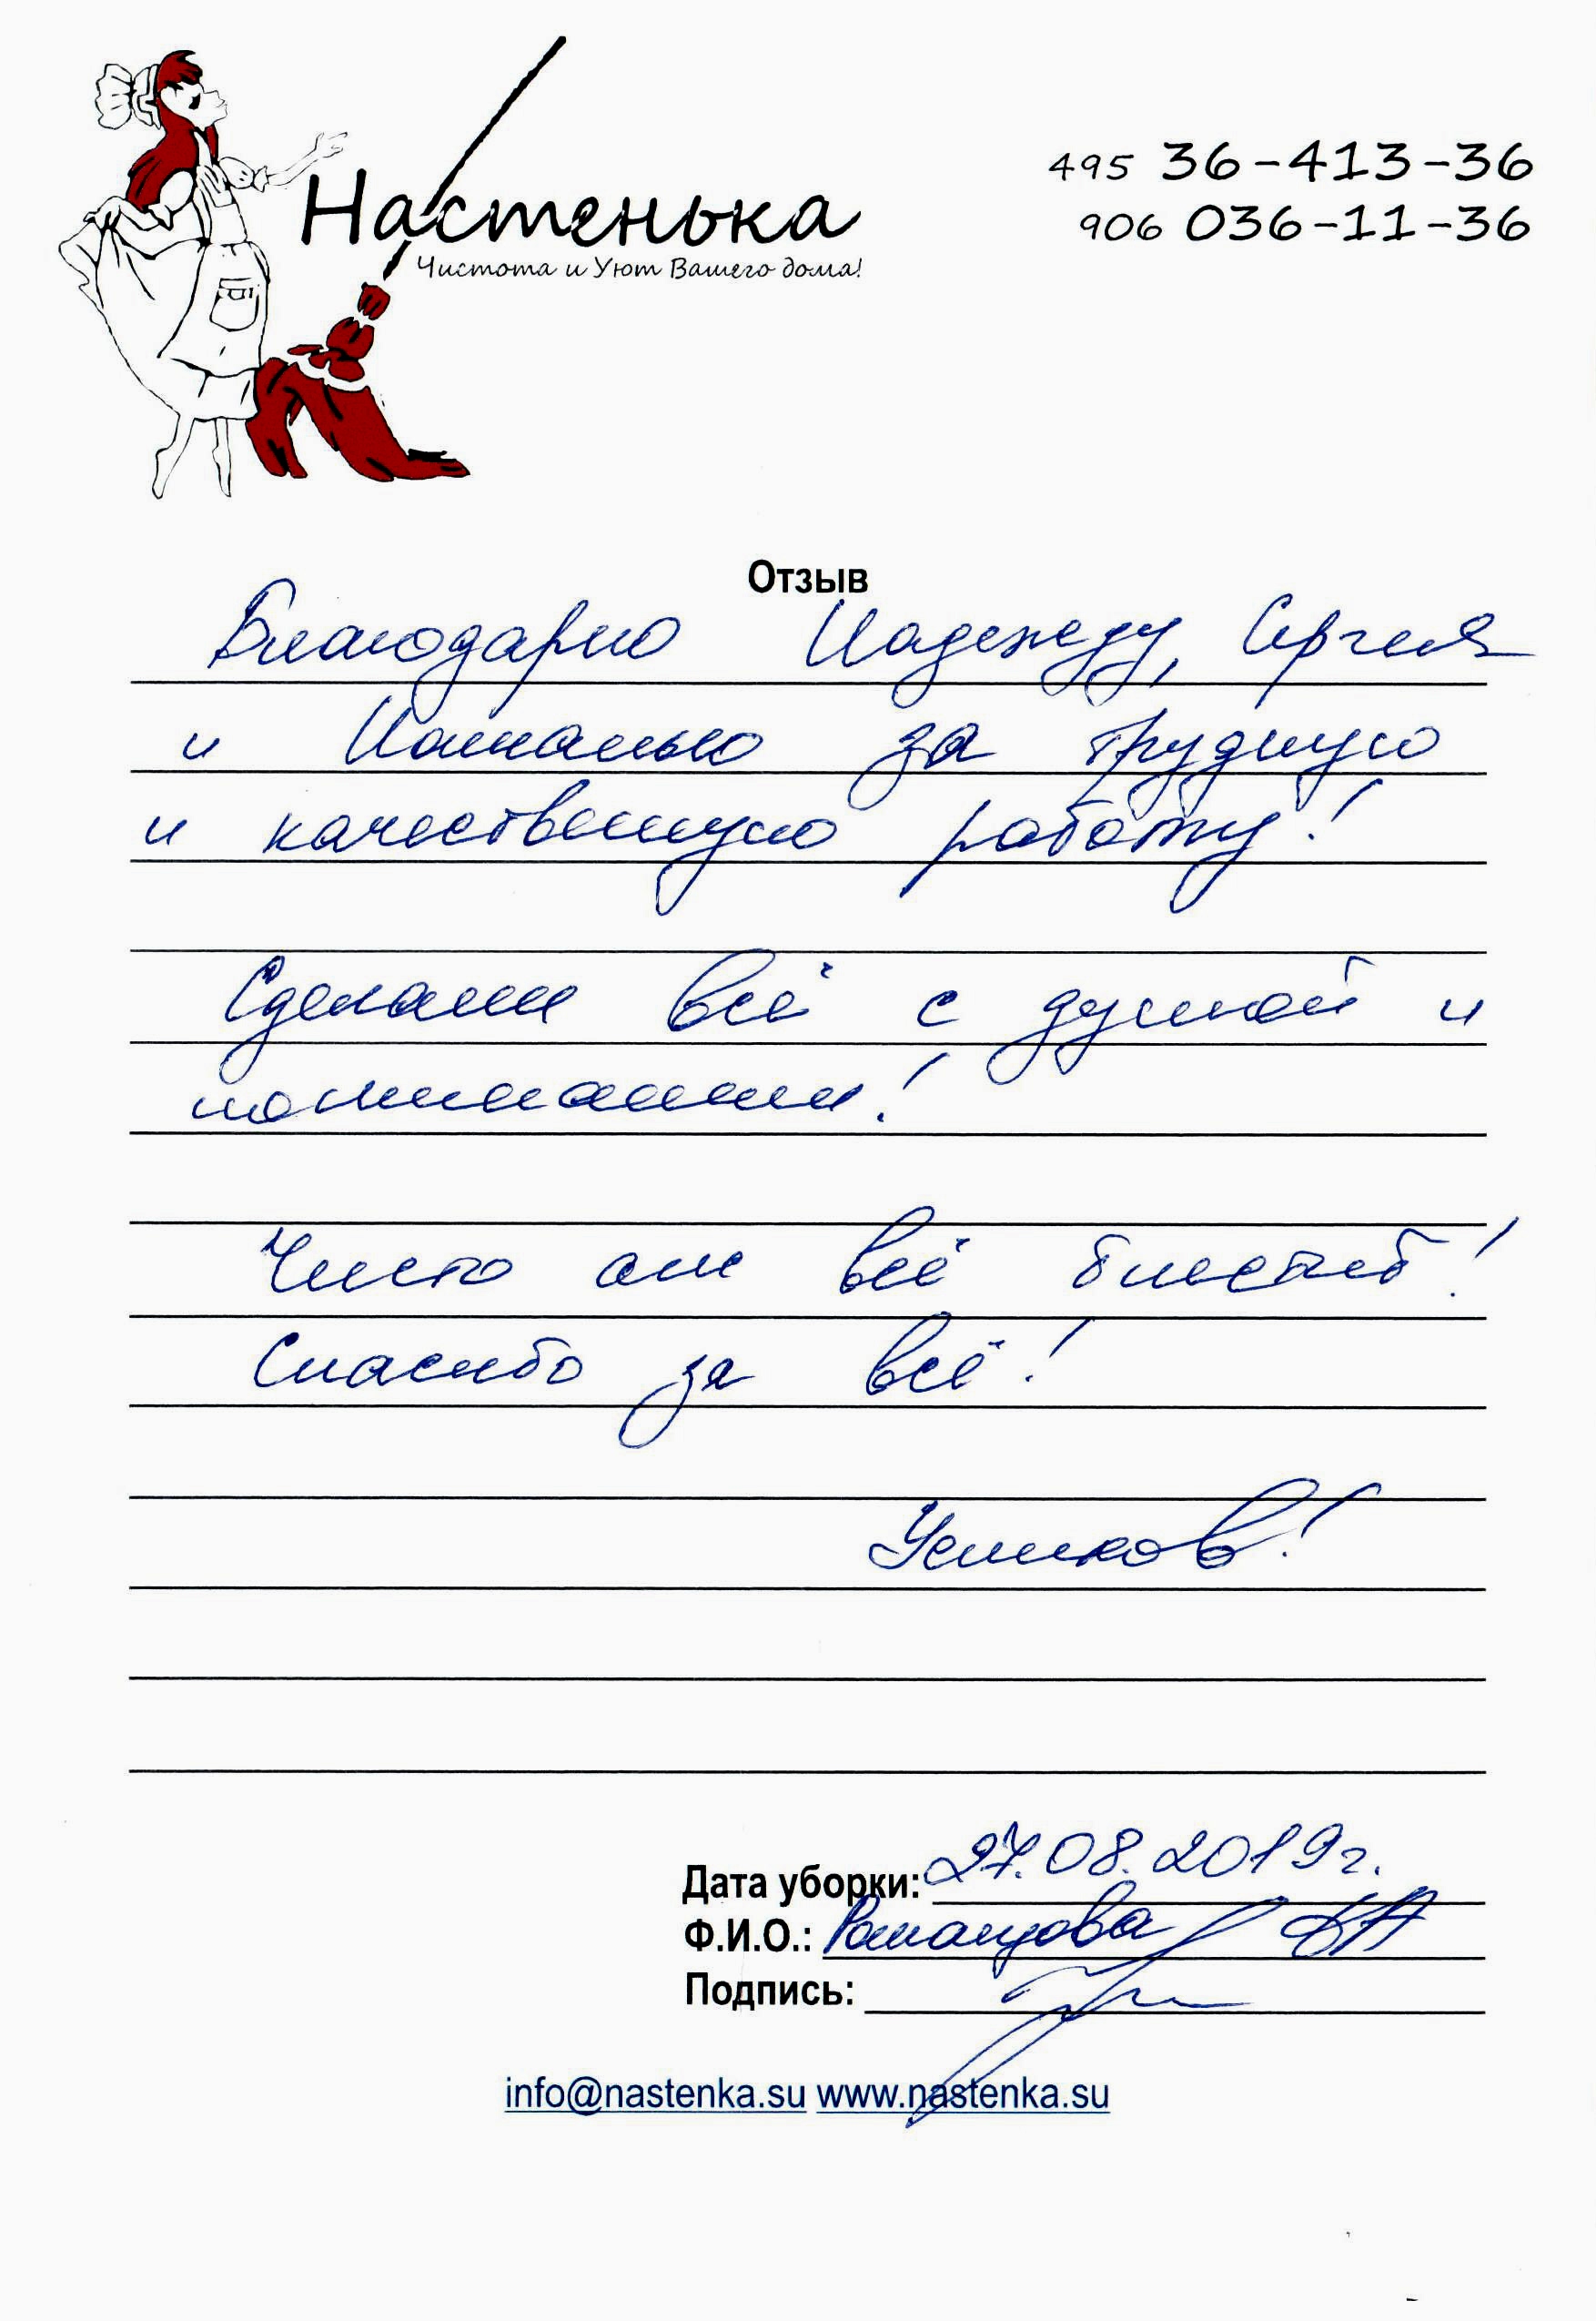 Настенька
Чистота и Уют Вашего дома!
495 36-413-36
906 036-11-36
Отзыв
Благодарю Надежду, Сергея
и Наталью за трудную
и качественную работу!
Сделали всё с душой и
пониманием!
Чисто аж всё блестит!
Спасибо за всё!
Успехов!
Дата уборки: 27.08.2019г.
Ф.И.О.: Романцова
Подпись:
info@nastenka.su www.nastenka.su